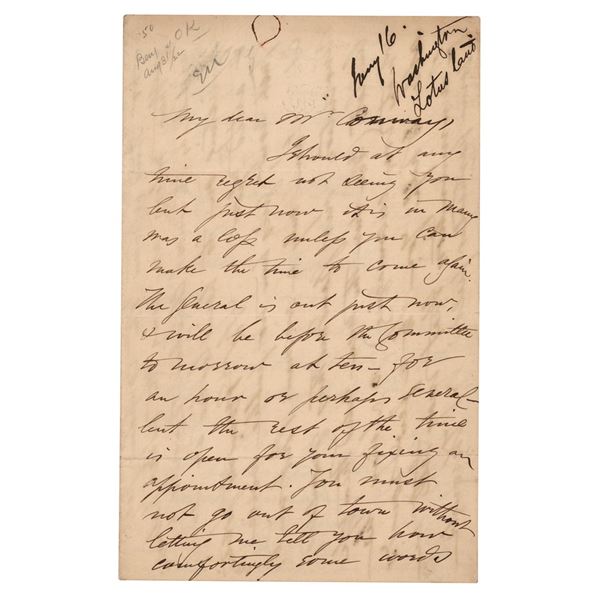 '50
OK
Beny
Aug 31/52
Jany 16.
Washington
Lotus Land
My dear Mr Conway,
I should at any
time regret not seeing you
but just now it is in many
was a loss unless you can
make the time to come again.
The General is out just now,
& will be before the Committee
tomorrow at ten - for
an hour or perhaps several -
but the rest of the time
is open for your fixing an
appointment. You must
not go out of town without
letting me tell you how
comfortingly some words